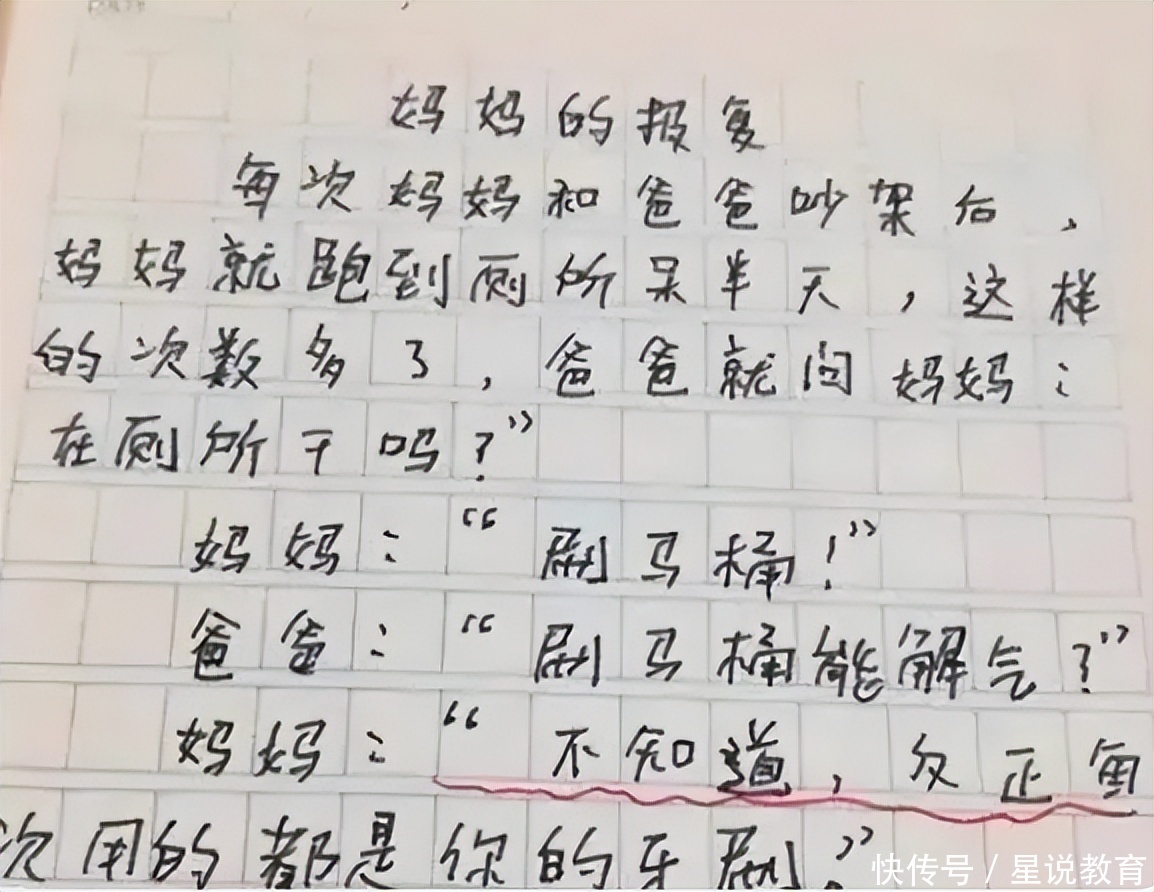 妈妈的报复
每次妈妈和爸爸吵架后,
妈妈就跑到厕所呆半天,这样
的次数多了,爸爸就问妈妈:
在厕所干吗?”
妈妈:“刷马桶!”
爸爸:“刷马桶能解气?”
妈妈:“不知道,反正每
次用的都是你的牙刷?”
快传号/星说教育